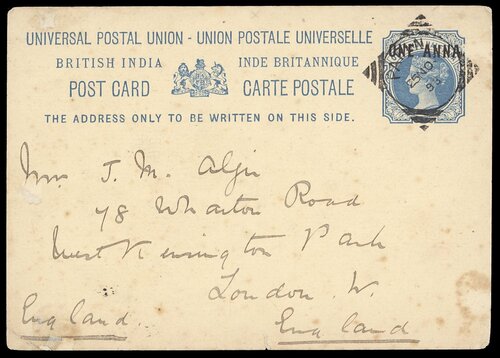 UNIVERSAL POSTAL UNION - UNION POSTALE UNIVERSELLE
BRITISH INDIA INDE BRITANNIQUE
POST CARD CARTE POSTALE
THE ADDRESS ONLY TO BE WRITTEN ON THIS SIDE.
ONE ANNA
25 NO
Mrs J. M. Algie
48 Wharton Road
West Kensington Park
London. W.
England. England